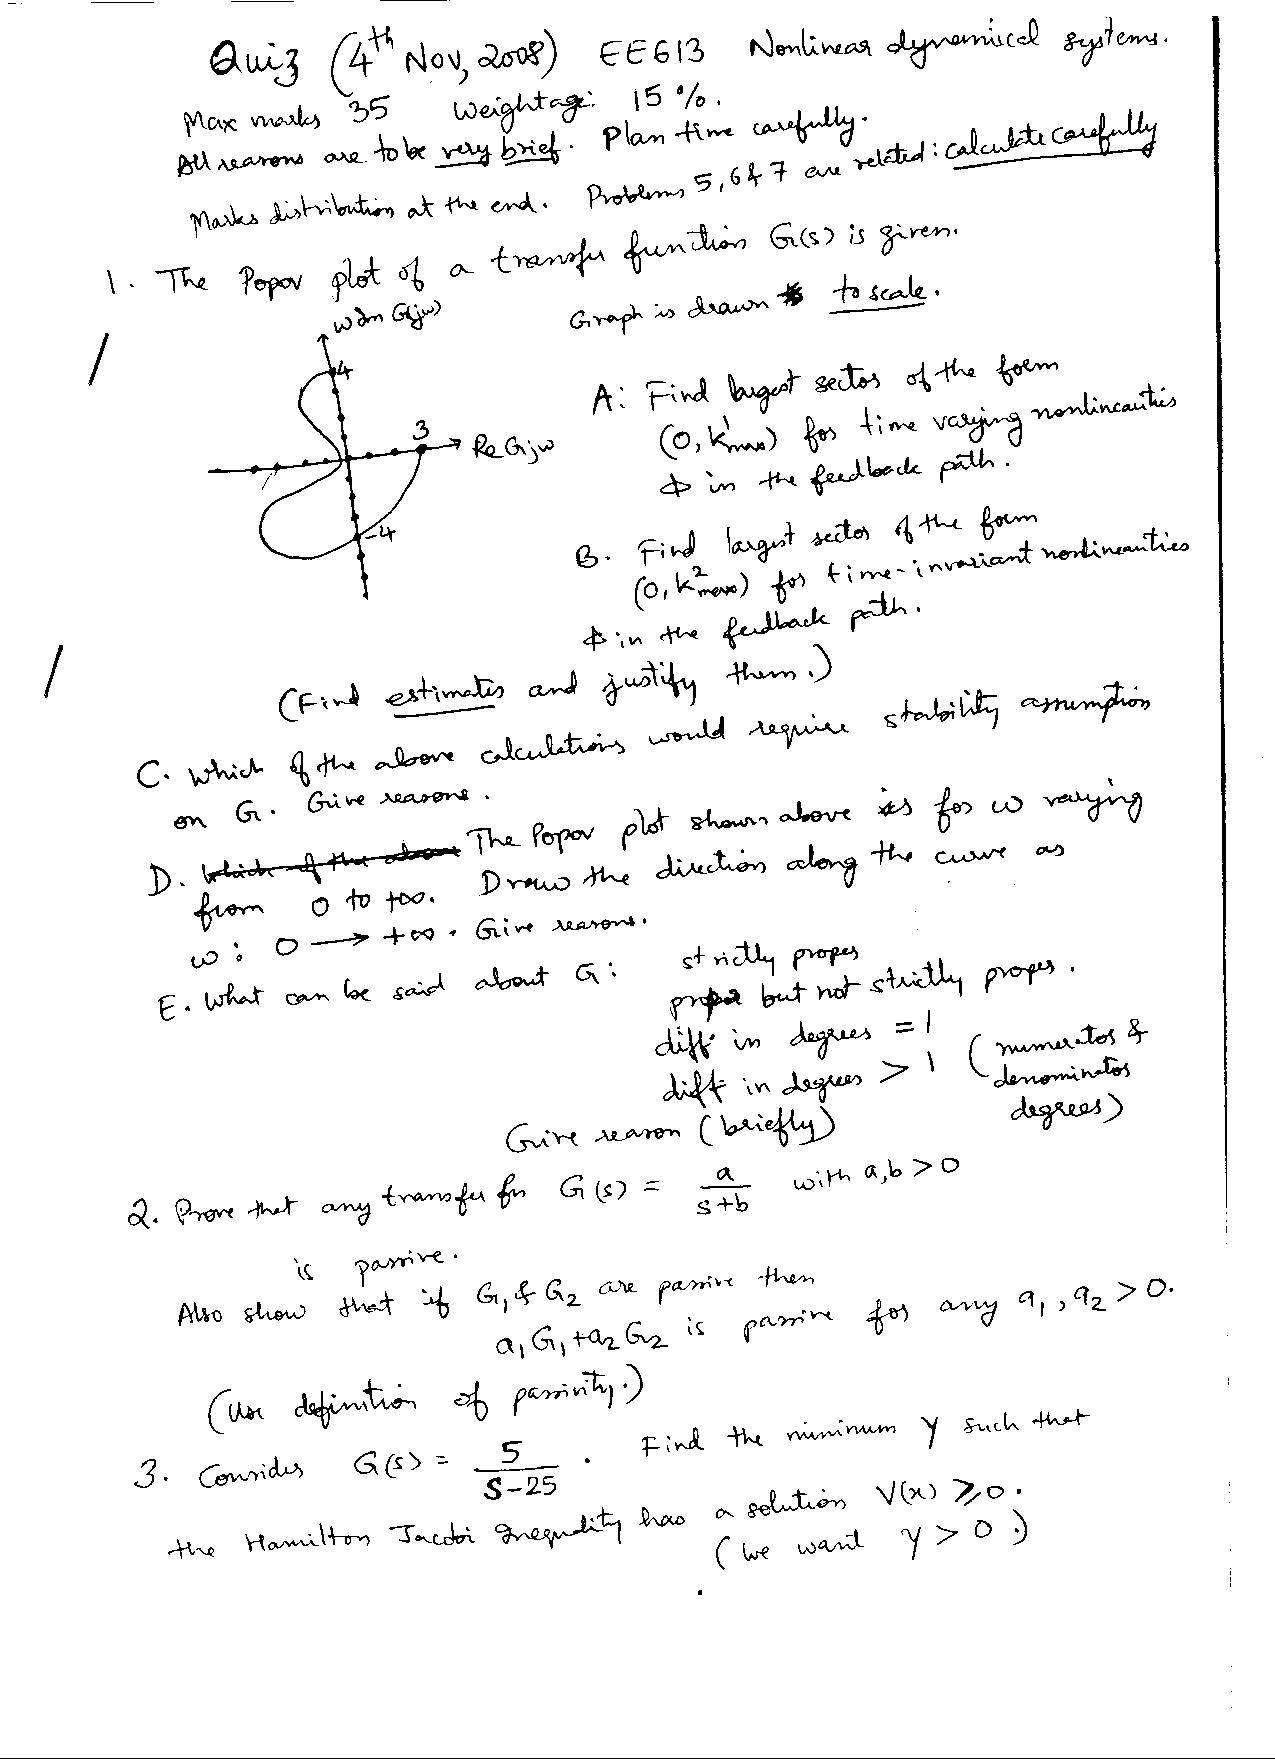 Quiz (4th Nov, 2008) EE613 Nonlinear dynamical systems.
Max marks 35 Weightage: 15%.
All reasons are to be very brief. Plan time carefully.
Marks distribution at the end. Problems 5, 6 & 7 are related: calculate carefully
1. The Popov plot of a transfer function G(s) is given.
ω Im G(jω)
Graph is drawn to scale.
4
3
Re Gjω
-4
A: Find largest sector of the form
(0, k¹max) for time varying nonlinearities
ϕ in the feedback path.
B. Find largest sector of the form
(0, k²max) for time-invariant nonlinearities
ϕ in the feedback path.
(Find estimates and justify them.)
C. Which of the above calculations would require stability assumption
on G. Give reasons.
D. Which of the above The Popov plot shown above is for ω varying
from 0 to +∞. Draw the direction along the curve as
ω : 0 → +∞. Give reasons.
E. What can be said about G: strictly proper
proper but not strictly proper.
diff in degrees = 1
diff in degrees > 1 (numerator & denominator degrees)
Give reason (briefly)
2. Prove that any transfer fn G(s) = a/(s+b) with a,b > 0
is passive.
Also show that if G₁ & G₂ are passive then
a₁G₁ + a₂G₂ is passive for any a₁, a₂ > 0.
(Use definition of passivity.)
3. Consider G(s) = 5/(s-25). Find the minimum γ such that
the Hamilton Jacobi Inequality has a solution V(x) ⩾ 0.
(We want γ > 0.)